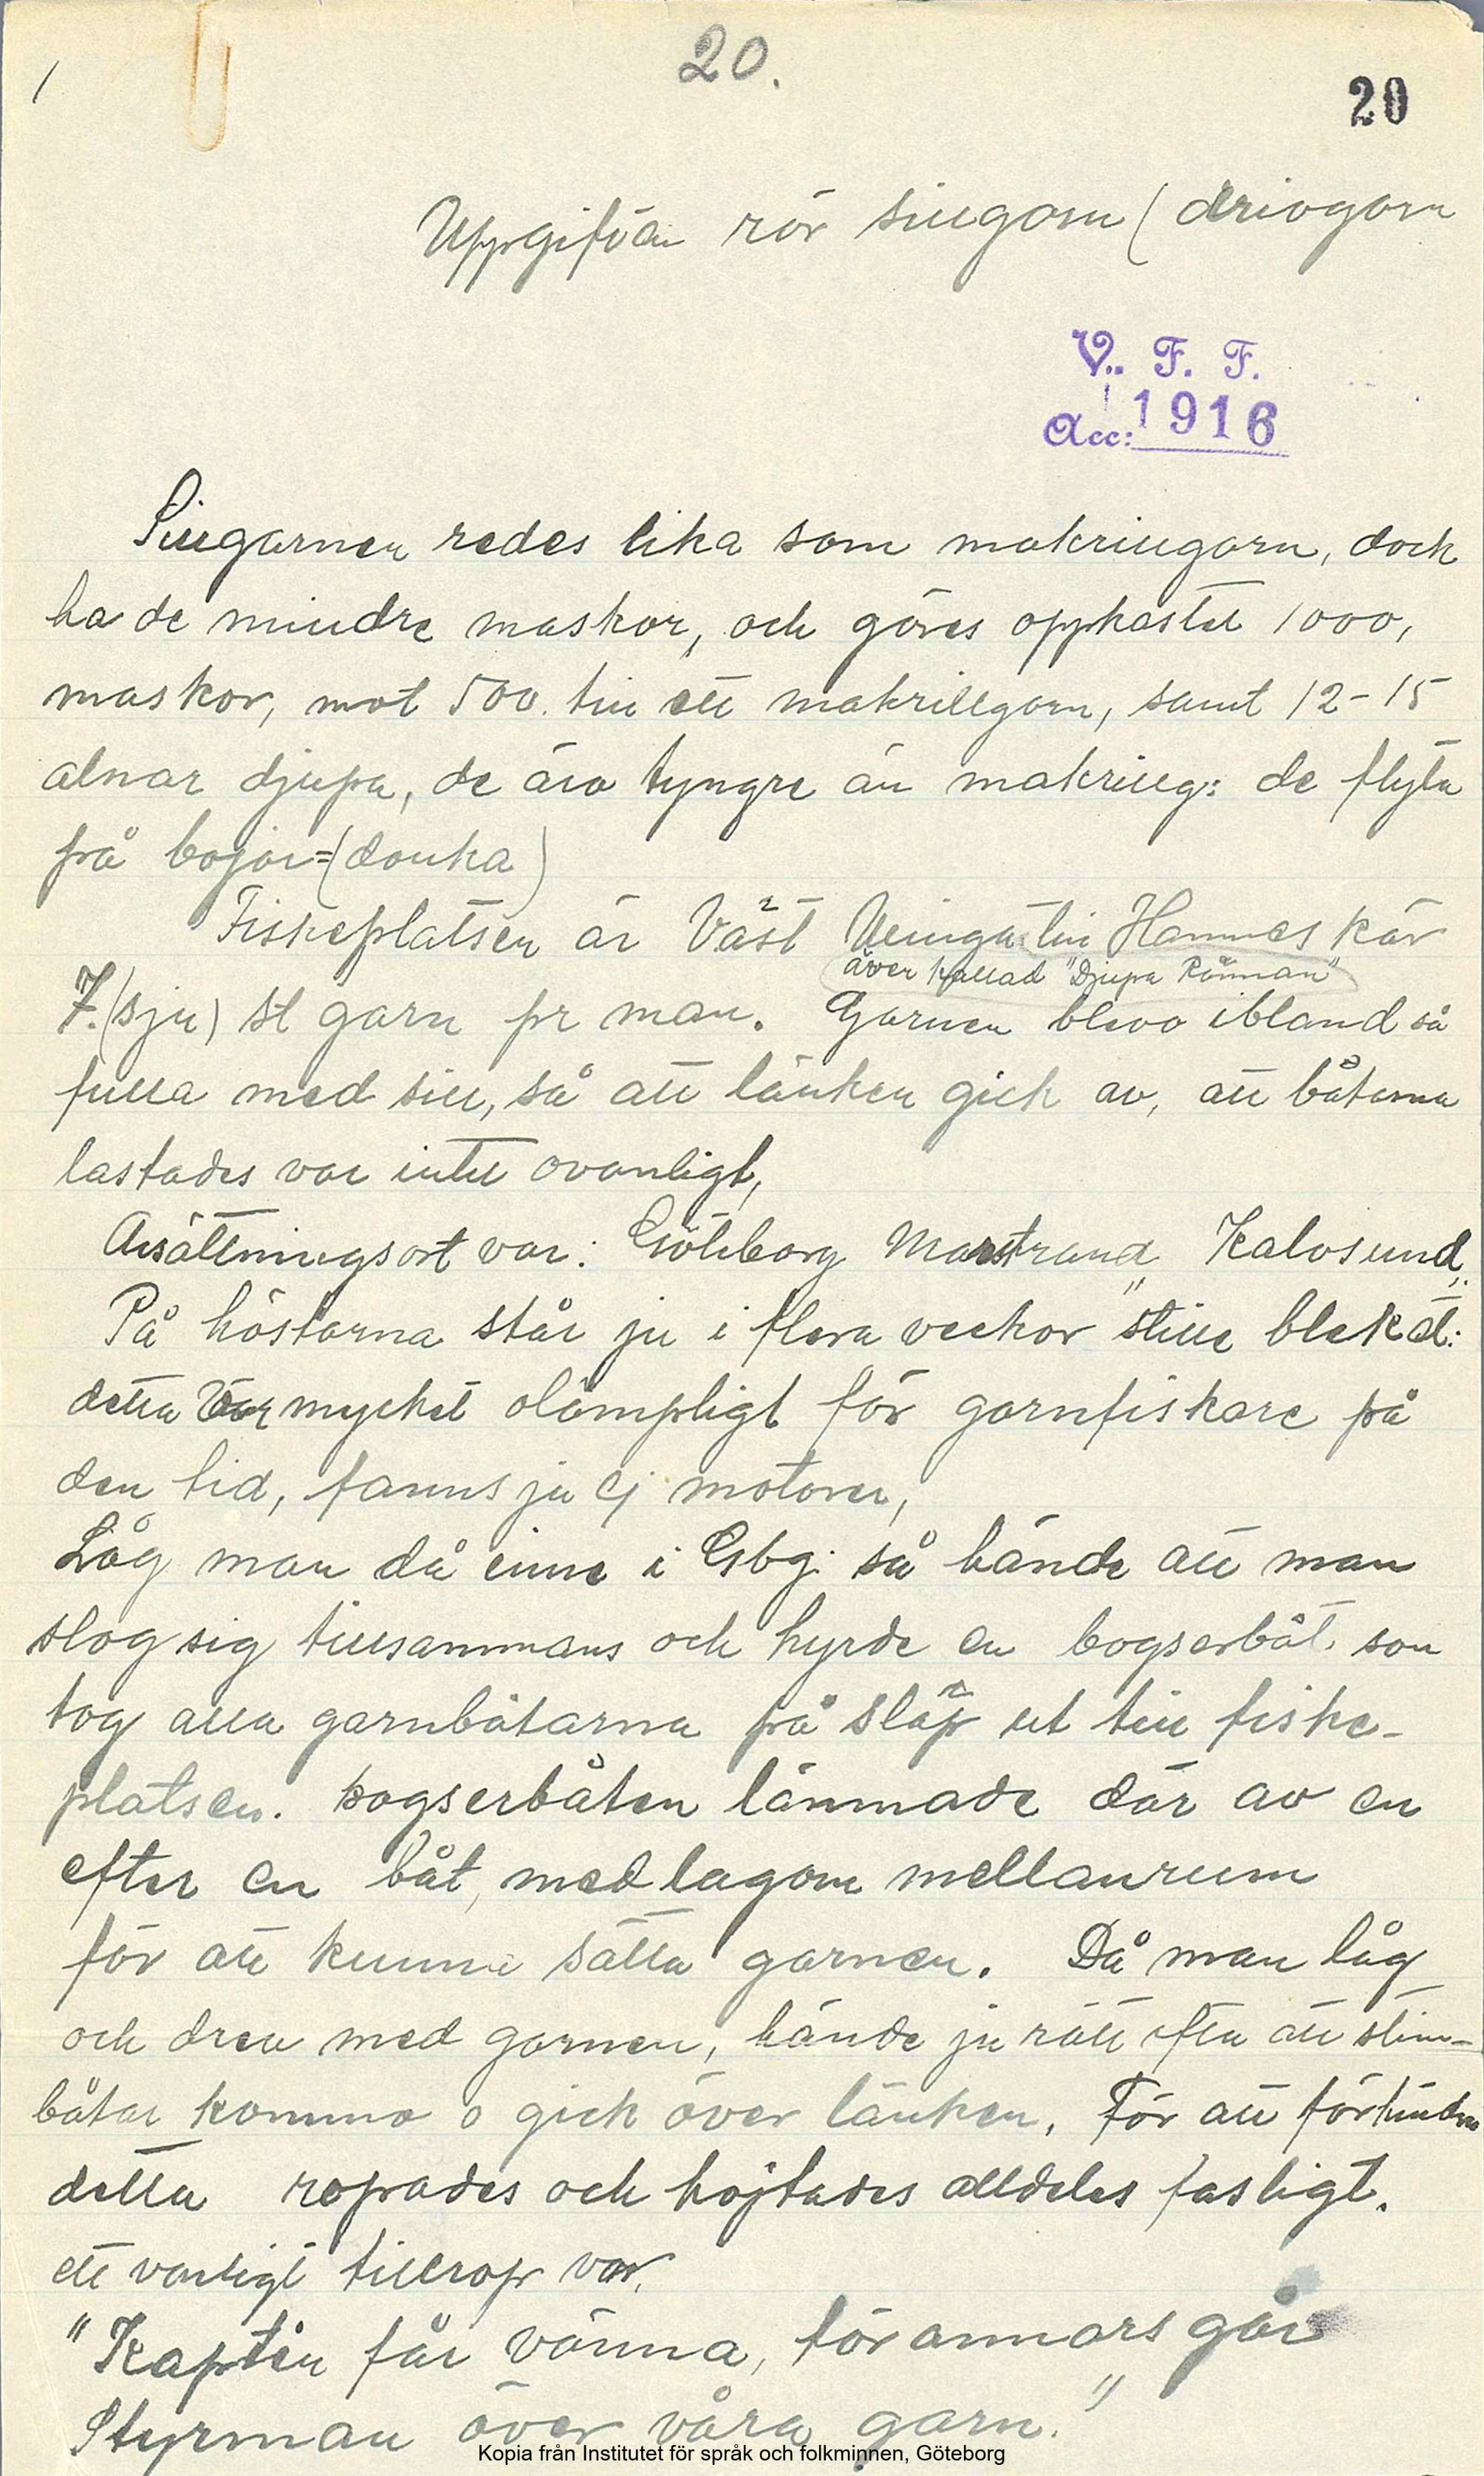 20.
20
Uppgiften rör sillgarn (drivgarn
V. F. F.
Acc: 1916
Sillgarnen redes lika som makrillgarn, dock
ha de mindre maskor, och göres oppkastet 1000,
maskor, mot 500. till ett makrillgarn, samt 12-15
alnar djupa, de äro tyngre än makrillg: de flyta
på bojar=(douka)
Fiskeplatsen är Väst Vinga till Hamneskär
även kallad "Djupa Rännan"
7.(sju) st garn pr man. Garnen blevo ibland så
fulla med sill, så att länken gick av, att båtarna
lastades var intet ovanligt,
Avsättningsort var: Göteborg Marstrand Kalvsund.
På höstarna står ju i flera veckor "stille bleked:
detta var mycket olämpligt för garnfiskare på
den tid, fanns ju ej motorer,
Låg man då inne i Gbg. så hände att man
slog sig tillsammans och hyrde en bogserbåt. som
tog alla garnbåtarna på släp ut till fiske-
platsen. bogserbåten lämnade där av en
efter en båt, med lagom mellanrum
för att kunna sätta garnen. Då man låg
och drev med garnen, hände ju rätt ofta att stim-
båtar kommo o gick över länken. För att förhindra
detta ropades och hojtades alldeles fasligt.
ett vanligt tillrop var.
"Kaptén får vänna, för annars går
Styrman över våra garn."
Kopia från Institutet för språk och folkminnen, Göteborg